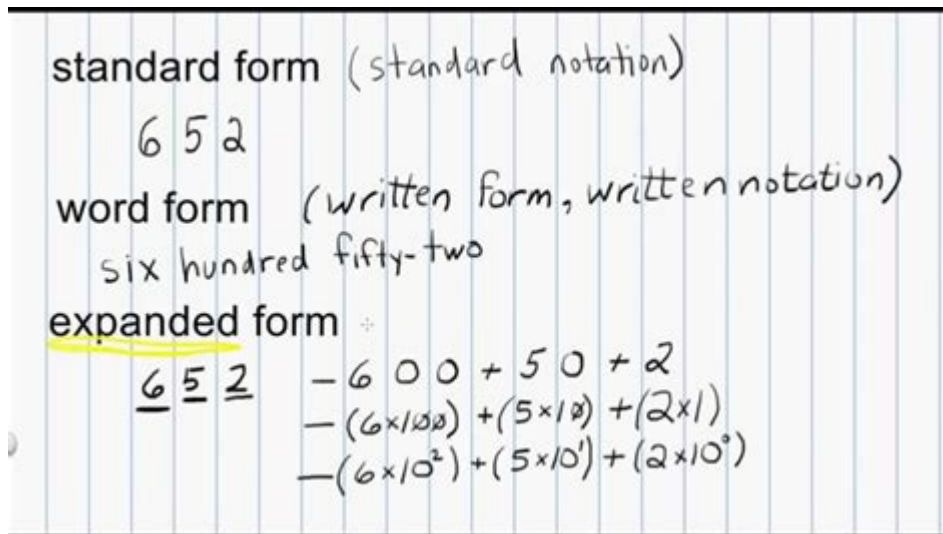 standard form (standard notation)
6 5 2
word form (written form, written notation)
six hundred fifty-two
expanded form
6 5 2 - 6 0 0 + 5 0 + 2
- (6×100) + (5×10) + (2×1)
- (6×10²) + (5×10¹) + (2×10⁰)